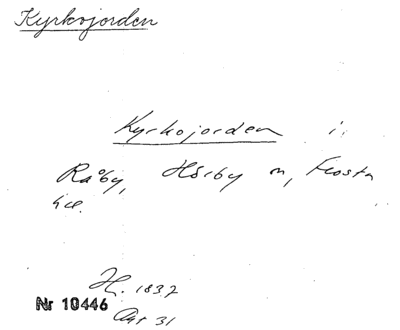 Kyrkojorden
Kyrkojorden i
Råby, Hörby sn, Frosta
hd.
H. 1837
Nr 10446
Akt 31